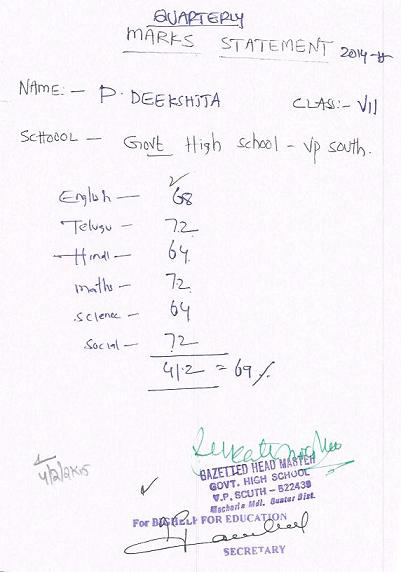 QUARTERLY
MARKS STATEMENT 2014-
NAME:- P. DEEKSHITA CLASS:- VII
SCHOOOL - Govt High school - Vp south.
English - 68
Telugu - 72
Hindi - 64
maths - 72
science - 64
social - 72
412 = 69 %
4/2/2015
GAZETTED HEAD MASTER
GOVT. HIGH SCHOOL
V.P. SOUTH - 522438
Macharla Mdl. Guntur Dist.
For HELP FOR EDUCATION
SECRETARY